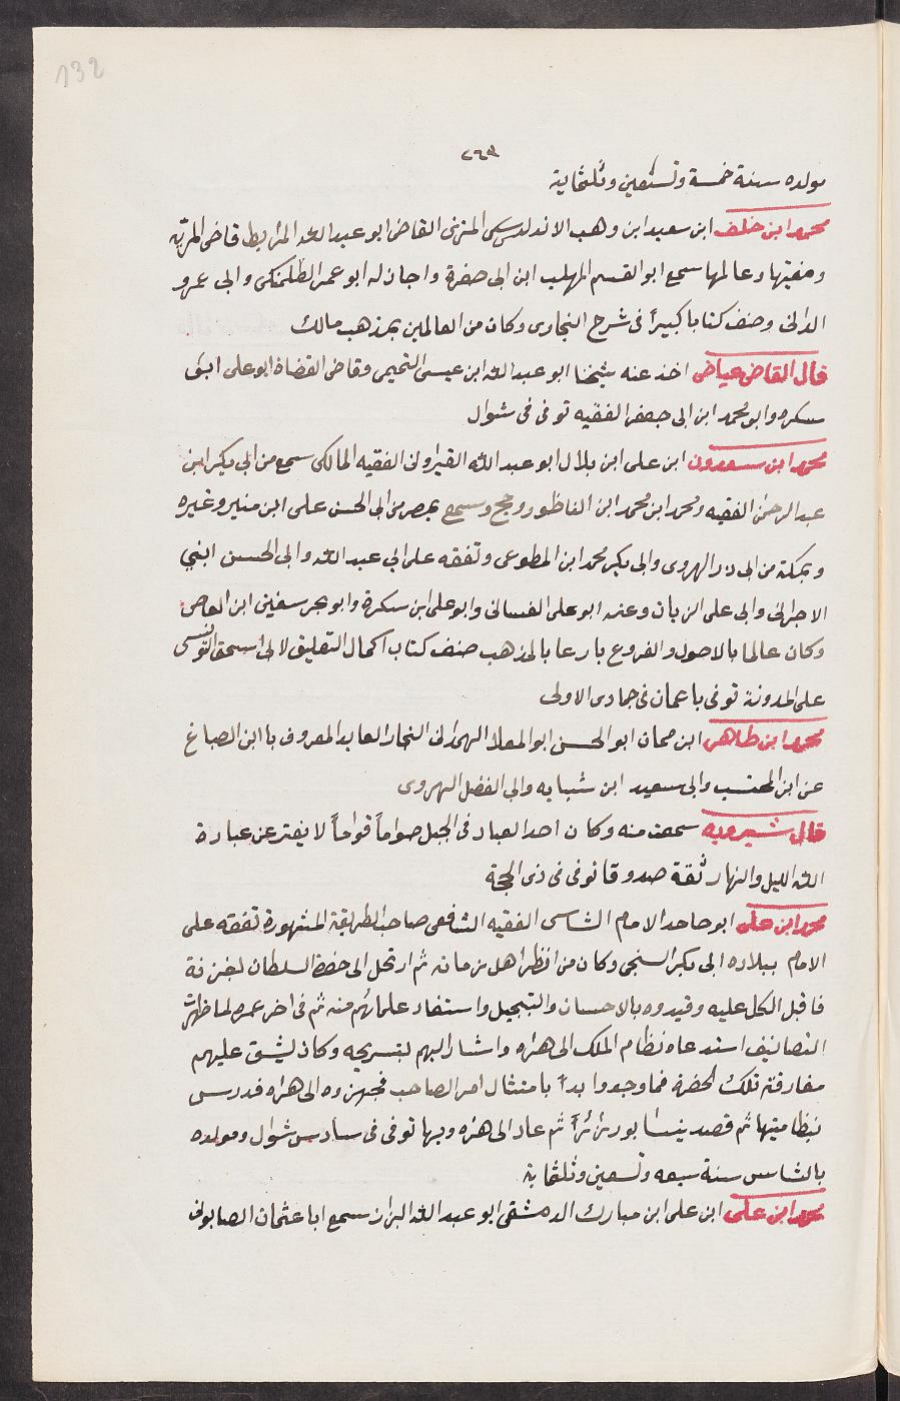 132
٢٦٩
مولده سنة خمسة وتسعين وثلثماية
محمد ابن خلف ابن سعيد ابن وهب الاندلسي المزنى القاضى ابو عبد الله المرابط قاضى المرية
ومفتيها وعالمها سمع ابو القسم المهلب ابن ابى صفرة واجاز له ابو عمر الطلمنكى وابى عمرو
الدانى وصنف كتابا كبيرا فى شرح البخارى وكان من العالمين بمذهب مالك
قال القاضى عياض اخذ عنه شيخنا ابو عبد الله ابن عيسى التميمى وقاضى القضاة ابو على ابن
سكره وابو محمد ابن ابى جعفر الفقيه توفى فى شوال
محمد ابن سعدون ابن على ابن بلال ابو عبد الله القيروانى الفقيه المالكى سمع من ابى بكر ابن
عبد الرحمن الفقيه ومحمد ابن محمد ابن الناظور وحج وسمع بمصر من ابى الحسن على ابن منير وغيره
وبمكة من ابى ذر الهروى وابى بكر محمد ابن المطوعى وتفقه على ابى عبد الله وابى الحسن ابنى
الاجدابى وابى على الزيات وعنه ابو على الغسانى وابو على ابن سكرة وابو بحر سفين ابن العاص
وكان عالما بالاصول والفروع بارعا بالمذهب صنف كتاب اكمال التعليق لابى اسحق التونسى
على المدونة توفى باغمات فى جمادى الاولى
محمد ابن طاهر ابن ممان ابو الحسن ابو العلا الهمدانى النجار العابد المعروف باابن الصباغ
عن ابن المحتسب وابى سعيد ابن شبابه وابى الفضل الهروى
قال شيرويه سمعت منه وكان احد العباد فى الجبل صواماً قواماً لا يفتر عن عبادة
الله الليل والنهار ثقة صدوقا توفى فى ذى الحجة
محمد ابن على ابو حامد الامام الشاسى الفقيه الشافعى صاحب الطريقة المشهورة تفقه على
الامام ببلاده ابى بكر السنجى وكان من انظر اهل زمانه ثم ارتحل الى حضرة السلطان بغزنة
فاقبل الكل عليه وقيدوه بالاحسان والتبجيل واستفاد علماؤهم منه ثم فى اخر عمره لما ظهرت
التصانيف استدعاه نظام الملك الى هراه واشار اليهم بتسريحه وكان يشق عليهم
مفارقته تلك الحضرة فما وجدوا بداً بامتثال امر الصاحب فجهزوه الى هراه فدرس
بنظاميتها ثم قصد نيسابور زائراً ثم عاد الى هراه وبها توفى فى سادس شوال ومولده
بالشاس سنة سبعه وتسعين وثلثماية
محمد ابن على ابن على ابن مبارك الدمشقى ابو عبد الله البزاز سمع ابا عثمان الصابونى